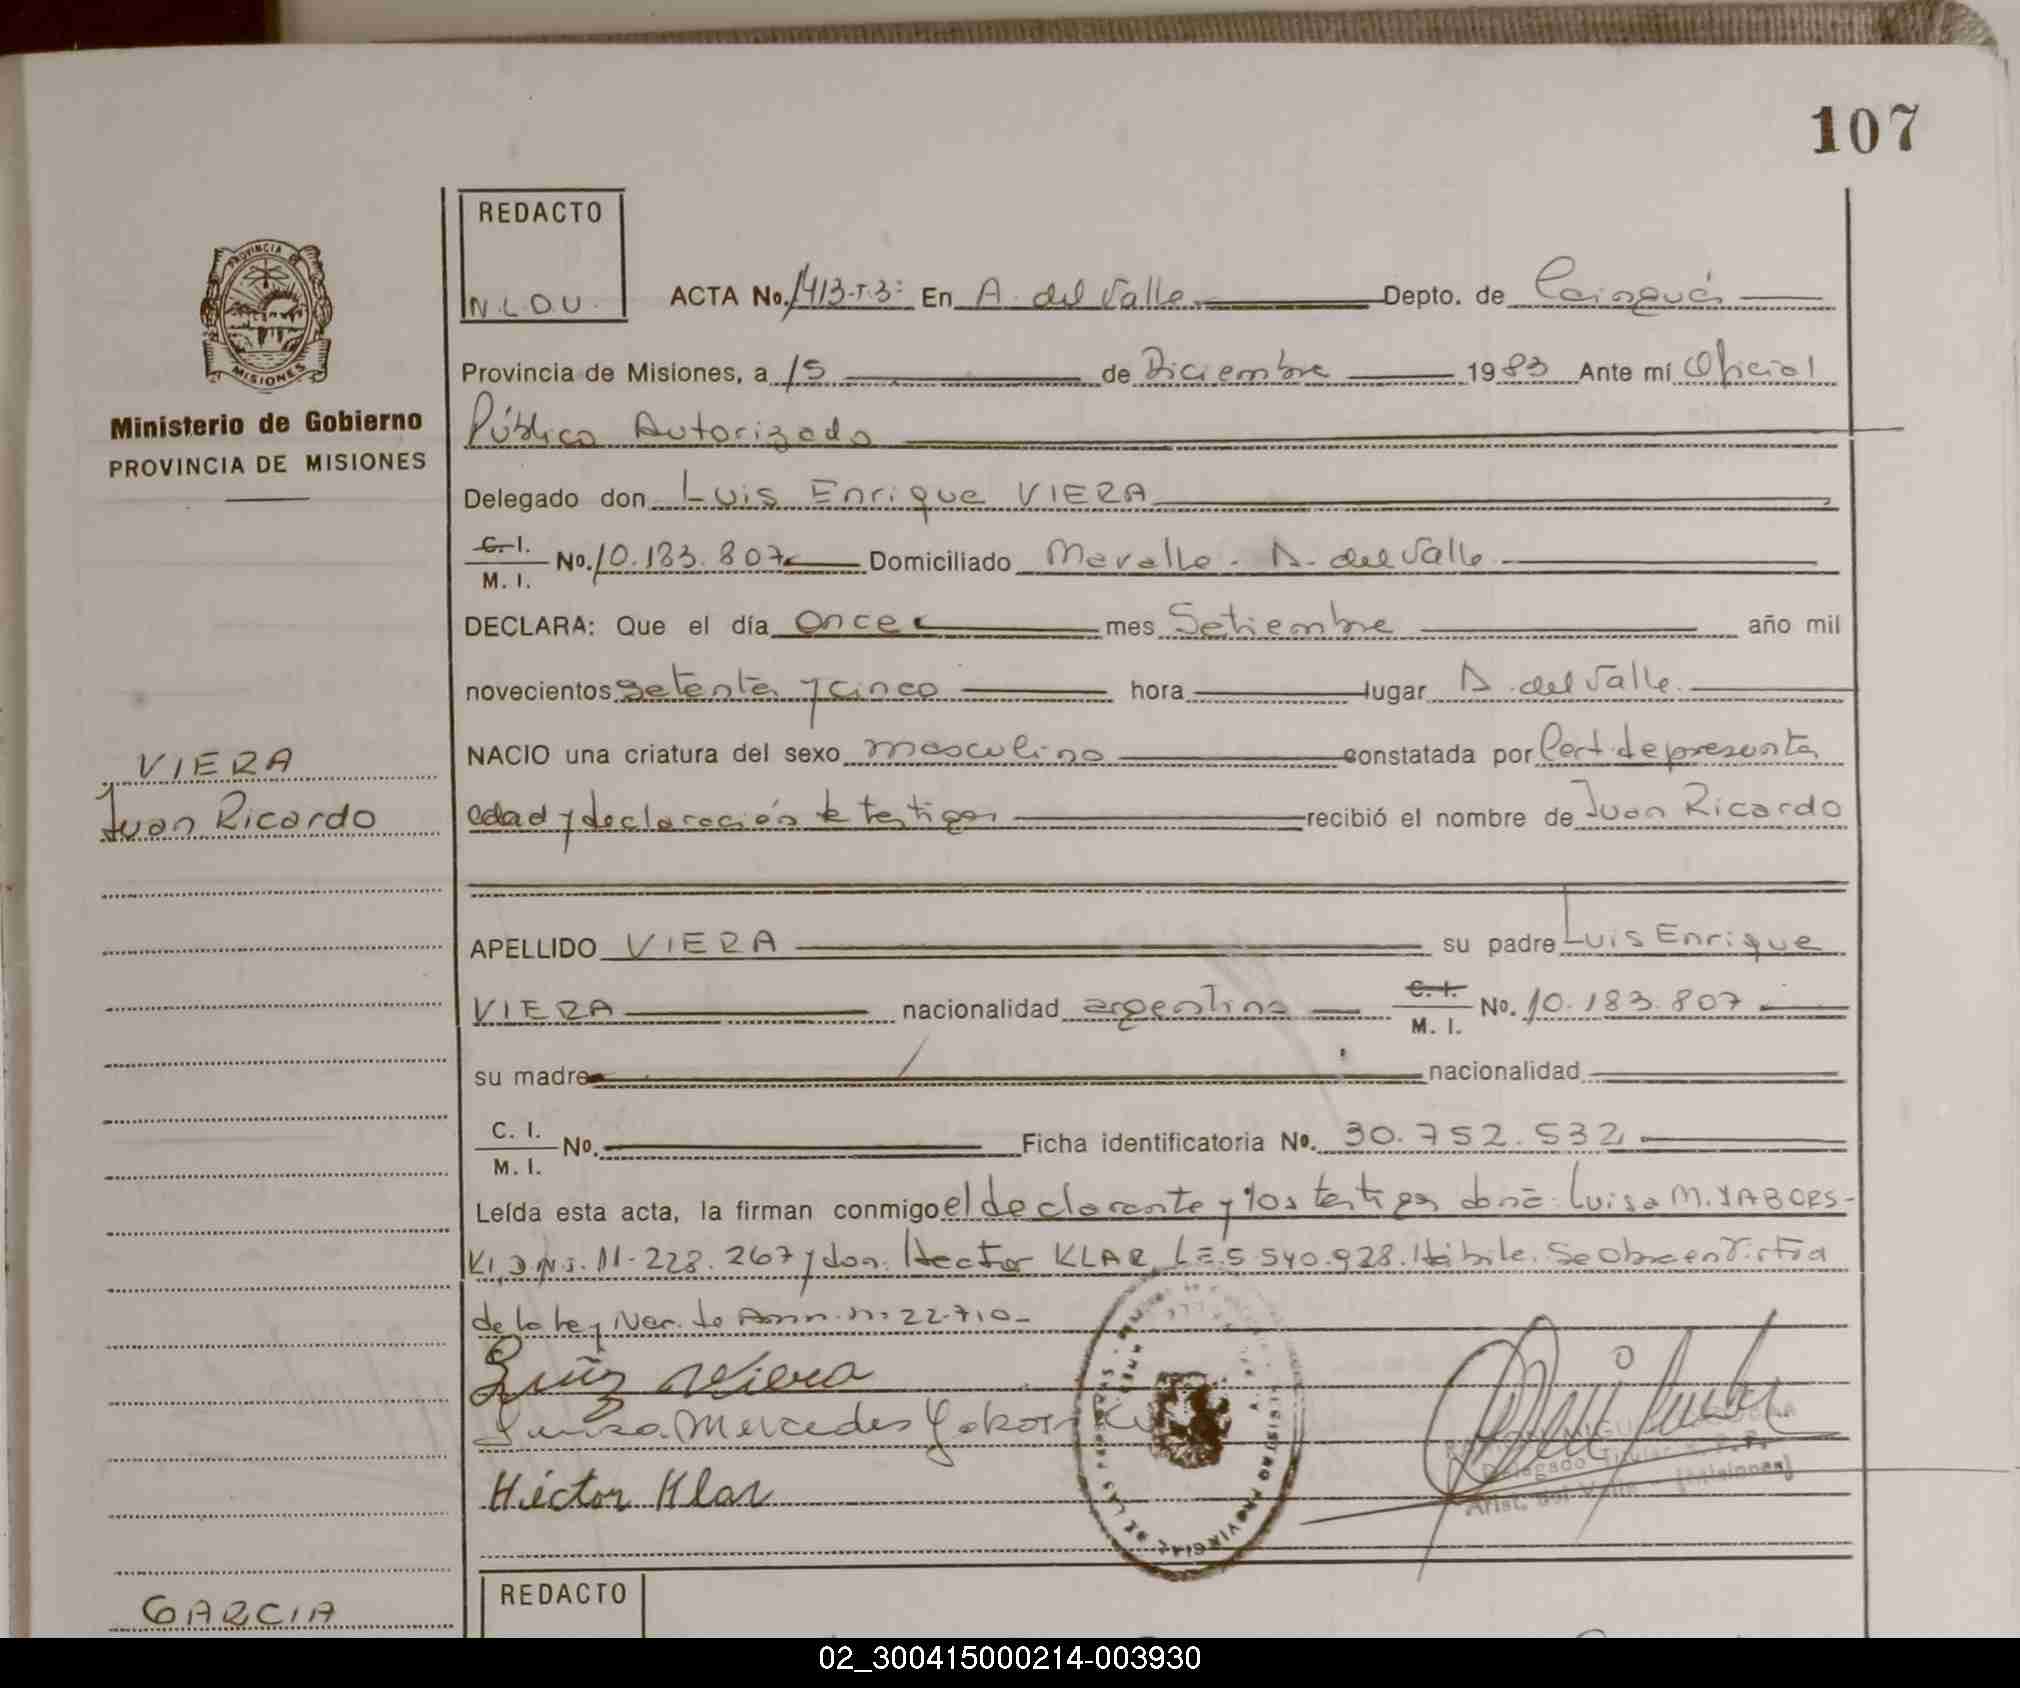 107
REDACTO
N.L.D.U.
PROVINCIA DE
MISIONES
Ministerio de Gobierno
PROVINCIA DE MISIONES
ACTA No. 1413-T.3: En A. del Valle Depto. de Cainguás
Provincia de Misiones, a 15 de Diciembre 1983 Ante mí Oficial
Público Autorizado
Delegado don Luis Enrique VIERA
C. I. / M. I. No. 10.183.807 Domiciliado A. del Valle
DECLARA: Que el día once mes Setiembre año mil
novecientos setenta y cinco hora lugar A. del Valle
NACIO una criatura del sexo masculino constatada por Cert. de presunta
edad y declaración de testigos recibió el nombre de Juan Ricardo
VIERA
Juan Ricardo
APELLIDO VIERA su padre Luis Enrique
VIERA nacionalidad argentina C. I. / M. I. No. 10.183.807
su madre nacionalidad
C. I. / M. I. No. Ficha identificatoria No. 30.752.532
Leída esta acta, la firman conmigo el declarante y los testigos doña: Luisa M. YABORS-
KI, D.N.I. 11.228.267 y don: Hector KLAR L.E. 5.540.928. Hábile. Se Obra en Virtud
de la Ley Nac. de Amn. nº 22.710-
Luiz Viera
Luisa Mercedes
Héctor Klar
REGISTRO PROVINCIAL DE LAS PERSONAS
Delegado Titular
Arist. del Valle - (Misiones)
REDACTO
GARCIA
02_300415000214-003930